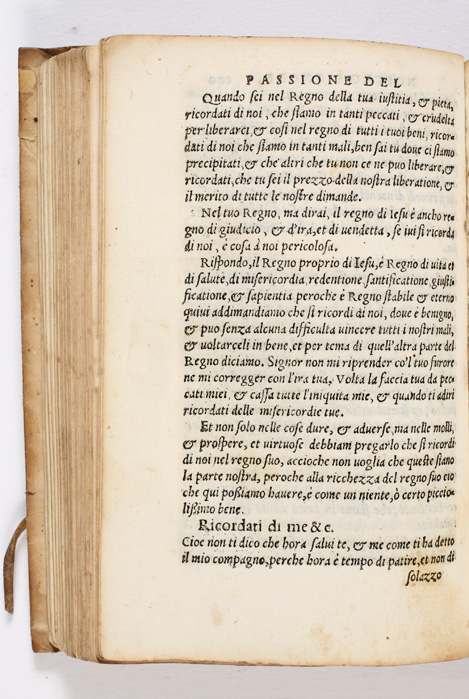 PASSIONE DEL
Quando sei nel Regno della tua iustitia, & pieta,
ricordati di noi, che siamo in tanti peccati, & crudelta
per liberarci, & così nel regno di tutti i tuoi beni, ricor-
dati di noi che siamo in tanti mali, ben sai tu doue ci siamo
precipitati, & che altri che tu non ce ne puo liberare, &
ricordati, che tu sei il prezzo della nostra liberatione, &
il merito di tutte le nostre dimande.
Nel tuo Regno, ma dirai, il regno di Iesu è ancho re-
gno di giudicio, & d'ira, et di uendetta, se iui si ricorda
di noi, è cosa à noi pericolosa.
Rispondo, il Regno proprio di Iesu, è Regno di uita et
di salute, di misericordia, redentione, santificatione, giusti-
ficatione, & sapientia peroche è Regno stabile & eterno
quiui addimandiamo che si ricordi di noi, doue è benigno,
& puo senza alcuna difficulta uincere tutti i nostri mali,
& uoltarceli in bene, et per tema di quell'altra parte del
Regno diciamo. Signor non mi riprender co'l tuo furore
ne mi corregger con l'ira tua, Volta la faccia tua da pec
cati miei, & cassa tutte l'iniquita mie, & quando ti adiri
ricordati delle misericordie tue.
Et non solo nelle cose dure, & aduerse, ma nelle molli,
& prospere, et uirtuose debbiam pregarlo che si ricordi
di noi nel regno suo, accioche non uoglia che queste siano
la parte nostra, peroche alla ricchezza del regno suo cio
che qui possiamo hauere, è come un niente, ò certo piccio-
lissimo bene.
Ricordati di me &c.
Cioe non ti dico che hora salui te, & me come ti ha detto
il mio compagno, perche hora è tempo di patire, et non di
solazzo